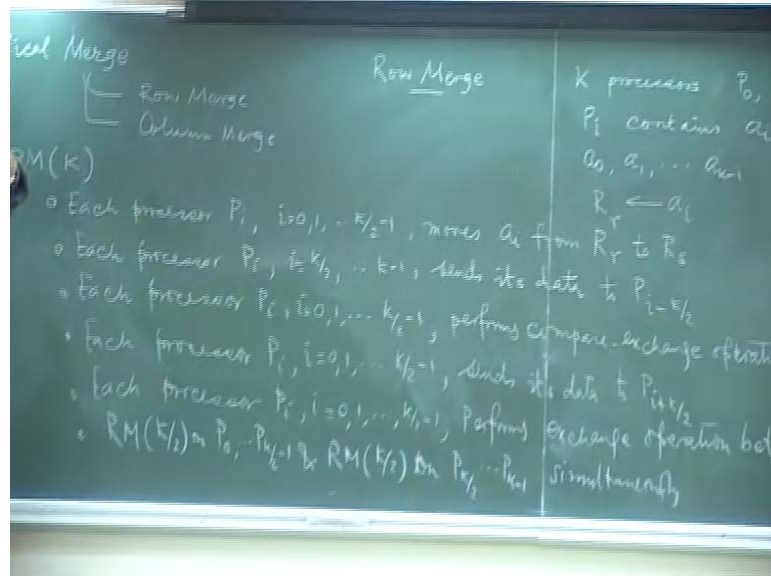 ical Merge
Row Merge
Column Merge
RM(K)
Row Merge
K processors P₀,
Pᵢ contains aᵢ
a₀, a₁, ... aₖ₋₁
Rᵣ ← aᵢ
Each processor Pᵢ, i=0,1,..k/2-1, moves aᵢ from Rᵣ to Rₛ
Each processor Pᵢ, i=k/2,..k-1, sends its data to P_{i-k/2}
Each processor Pᵢ, i=0,1,... k/2-1, performs compare-exchange operati
Each processor Pᵢ, i=0,1,...k/2-1, sends its data to P_{i+k/2}
Each processor Pᵢ, i=0,1,...,k/2-1, Performs exchange operation bet
RM(k/2) on P₀,..P_{k/2-1} & RM(k/2) on P_{k/2}...P_{k-1} simultaneously